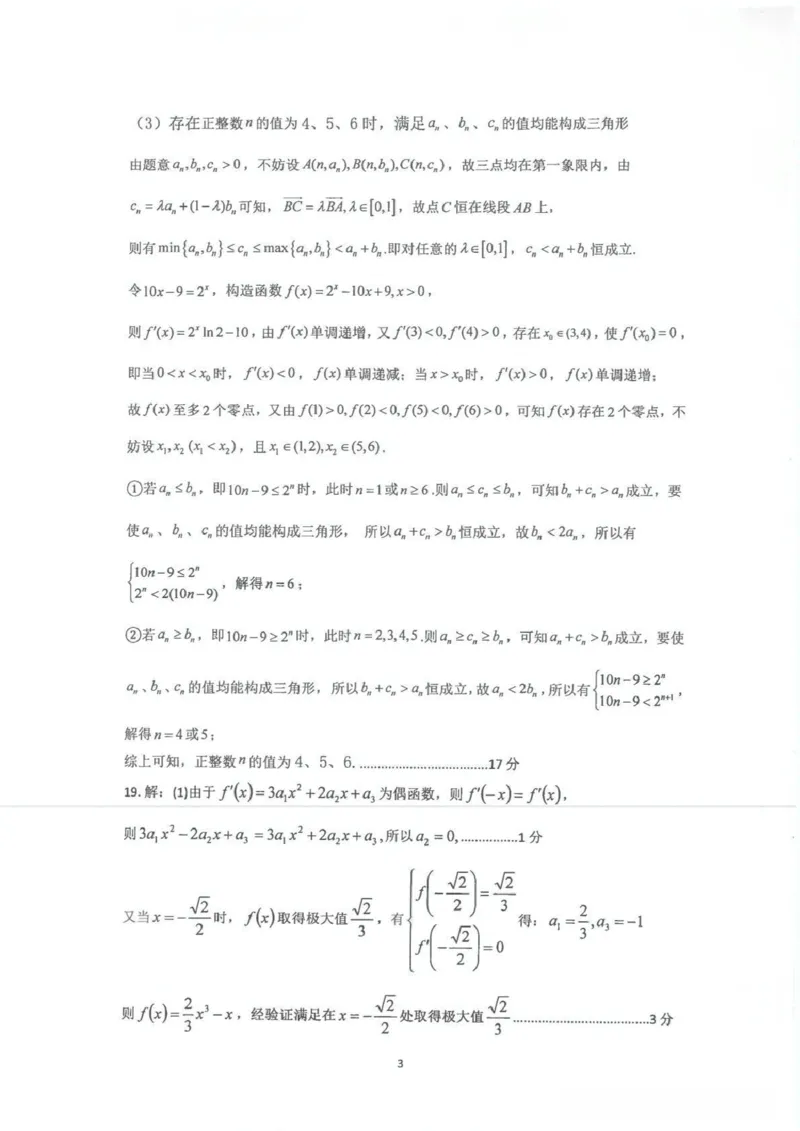 （3）存在正整数n的值为 4、5、6 时，满足aₙ、bₙ、cₙ的值均能构成三角形
由题意aₙ,bₙ,cₙ>0，不妨设A(n,aₙ),B(n,bₙ),C(n,cₙ)，故三点均在第一象限内，由
cₙ=λaₙ+(1−λ)bₙ可知，BC=λBA,λ∈[0,1]，故点C恒在线段AB上，
则有min{aₙ,bₙ}≤cₙ≤max{aₙ,bₙ}<aₙ+bₙ.即对任意的λ∈[0,1]，cₙ<aₙ+bₙ恒成立.
令10x−9=2ˣ，构造函数f(x)=2ˣ−10x+9,x>0，
则f′(x)=2ˣln2−10，由f′(x)单调递增，又f′(3)<0,f′(4)>0，存在x₀∈(3,4)，使f′(x₀)=0，
即当0<x<x₀时，f′(x)<0，f(x)单调递减；当x>x₀时，f′(x)>0，f(x)单调递增；
故f(x)至多2个零点，又由f(1)>0,f(2)<0,f(5)<0,f(6)>0，可知f(x)存在2个零点，不
妨设x₁,x₂(x₁<x₂)，且x₁∈(1,2),x₂∈(5,6).
①若aₙ≤bₙ，即10n−9≤2ⁿ时，此时n=1或n≥6.则aₙ≤cₙ≤bₙ，可知bₙ+cₙ>aₙ成立，要
使aₙ、bₙ、cₙ的值均能构成三角形，所以aₙ+cₙ>bₙ恒成立，故bₙ<2aₙ，所以有
{10n−9≤2ⁿ
2ⁿ<2(10n−9)，解得n=6；
②若aₙ≥bₙ，即10n−9≥2ⁿ时，此时n=2,3,4,5.则aₙ≥cₙ≥bₙ，可知aₙ+cₙ>bₙ成立，要使
aₙ、bₙ、cₙ的值均能构成三角形，所以bₙ+cₙ>aₙ恒成立，故aₙ<2bₙ，所以有{10n−9≥2ⁿ
10n−9<2ⁿ⁺¹，
解得n=4或5；
综上可知，正整数n的值为 4、5、6.................................17分
19.解：(1)由于f′(x)=3a₁x²+2a₂x+a₃为偶函数，则f′(−x)=f′(x)，
则3a₁x²−2a₂x+a₃=3a₁x²+2a₂x+a₃,所以a₂=0,................1分
又当x=−√2/2时，f(x)取得极大值√2/3，有{f(−√2/2)=√2/3
f′(−√2/2)=0 得：a₁=2/3,a₃=−1
则f(x)=2/3x³−x，经验证满足在x=−√2/2处取得极大值√2/3.....................................3分
3